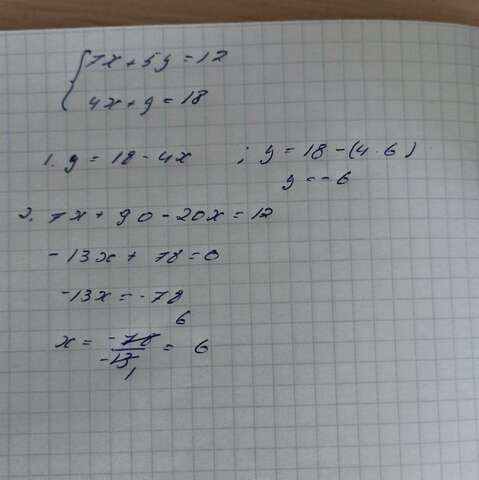 7x + 5y = 12
4x + y = 18
1. y = 18 - 4x ; y = 18 - (4 · 6)
y = - 6
2. 7x + 90 - 20x = 12
- 13x + 78 = 0
-13x = - 78
6
x = -78/-13 = 6
1